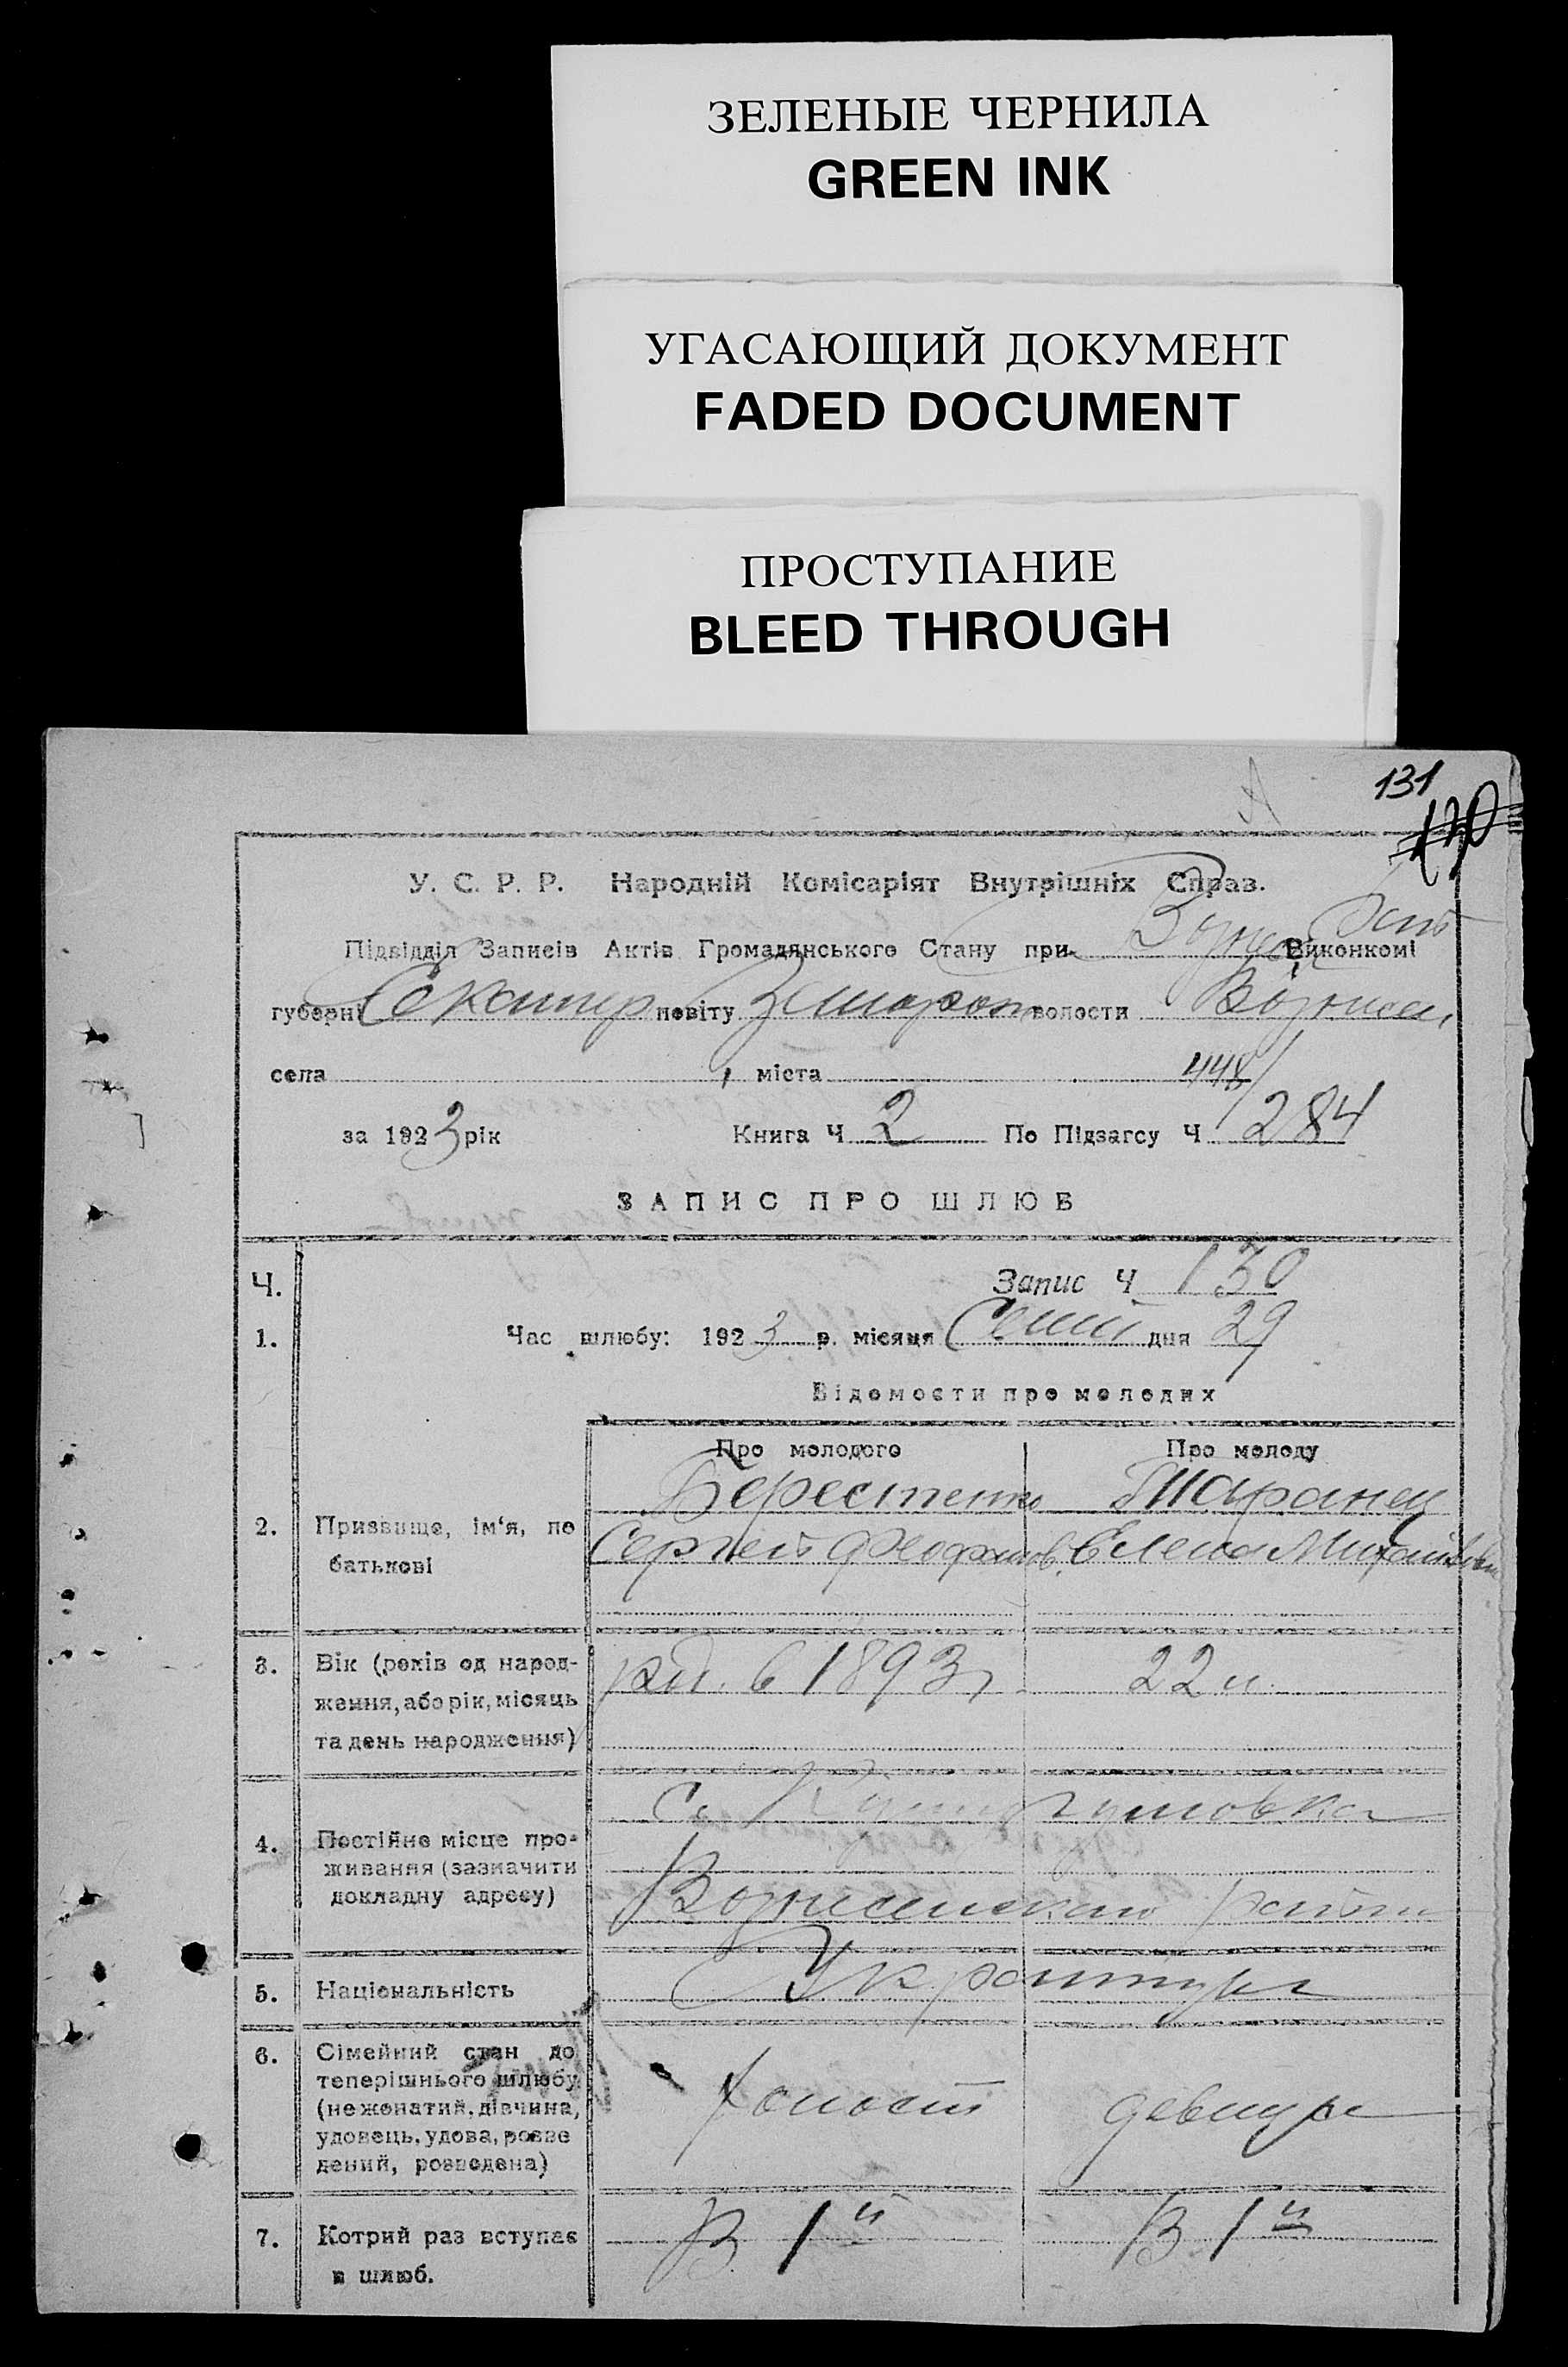 ЗЕЛЕНЫЕ ЧЕРНИЛА
GREEN INK
УГАСАЮЩИЙ ДОКУМЕНТ
FADED DOCUMENT
ПРОСТУПАНИЕ
BLEED THROUGH
131
130
У. С. Р. Р. Народній Комісаріят Внутрішніх Справ.
Підвідділ Записів Актів Громадянського Стану при Виконкомі
губерні Екатер повіту волости Вознесен
села , міста 448/
за 1923 рік Книга Ч 2 По Підзагсу Ч 284
ЗАПИС ПРО ШЛЮБ
Ч. Запис Ч 130
1. Час шлюбу: 1923 р. місяця Сент дня 29
Відомости про молодих
Про молодого Про молоду
2. Призвище, ім'я, по батькові
Таранец
Сергей Феофилов. Елена Михайловн
3. Вік (років од народження, або рік, місяць та день народження)
род. в 1893 г 22 л.
4. Постійне місце проживання (зазначити докладну адресу)
С. Кушугумовка
Вознесенскаго района
5. Національність
Украинцы
6. Сімейний стан до теперішнього шлюбу (не жонатий, дівчина, удовець, удова, розведений, розведена)
холост девица
7. Котрий раз вступає в шлюб.
В 1й В 1й